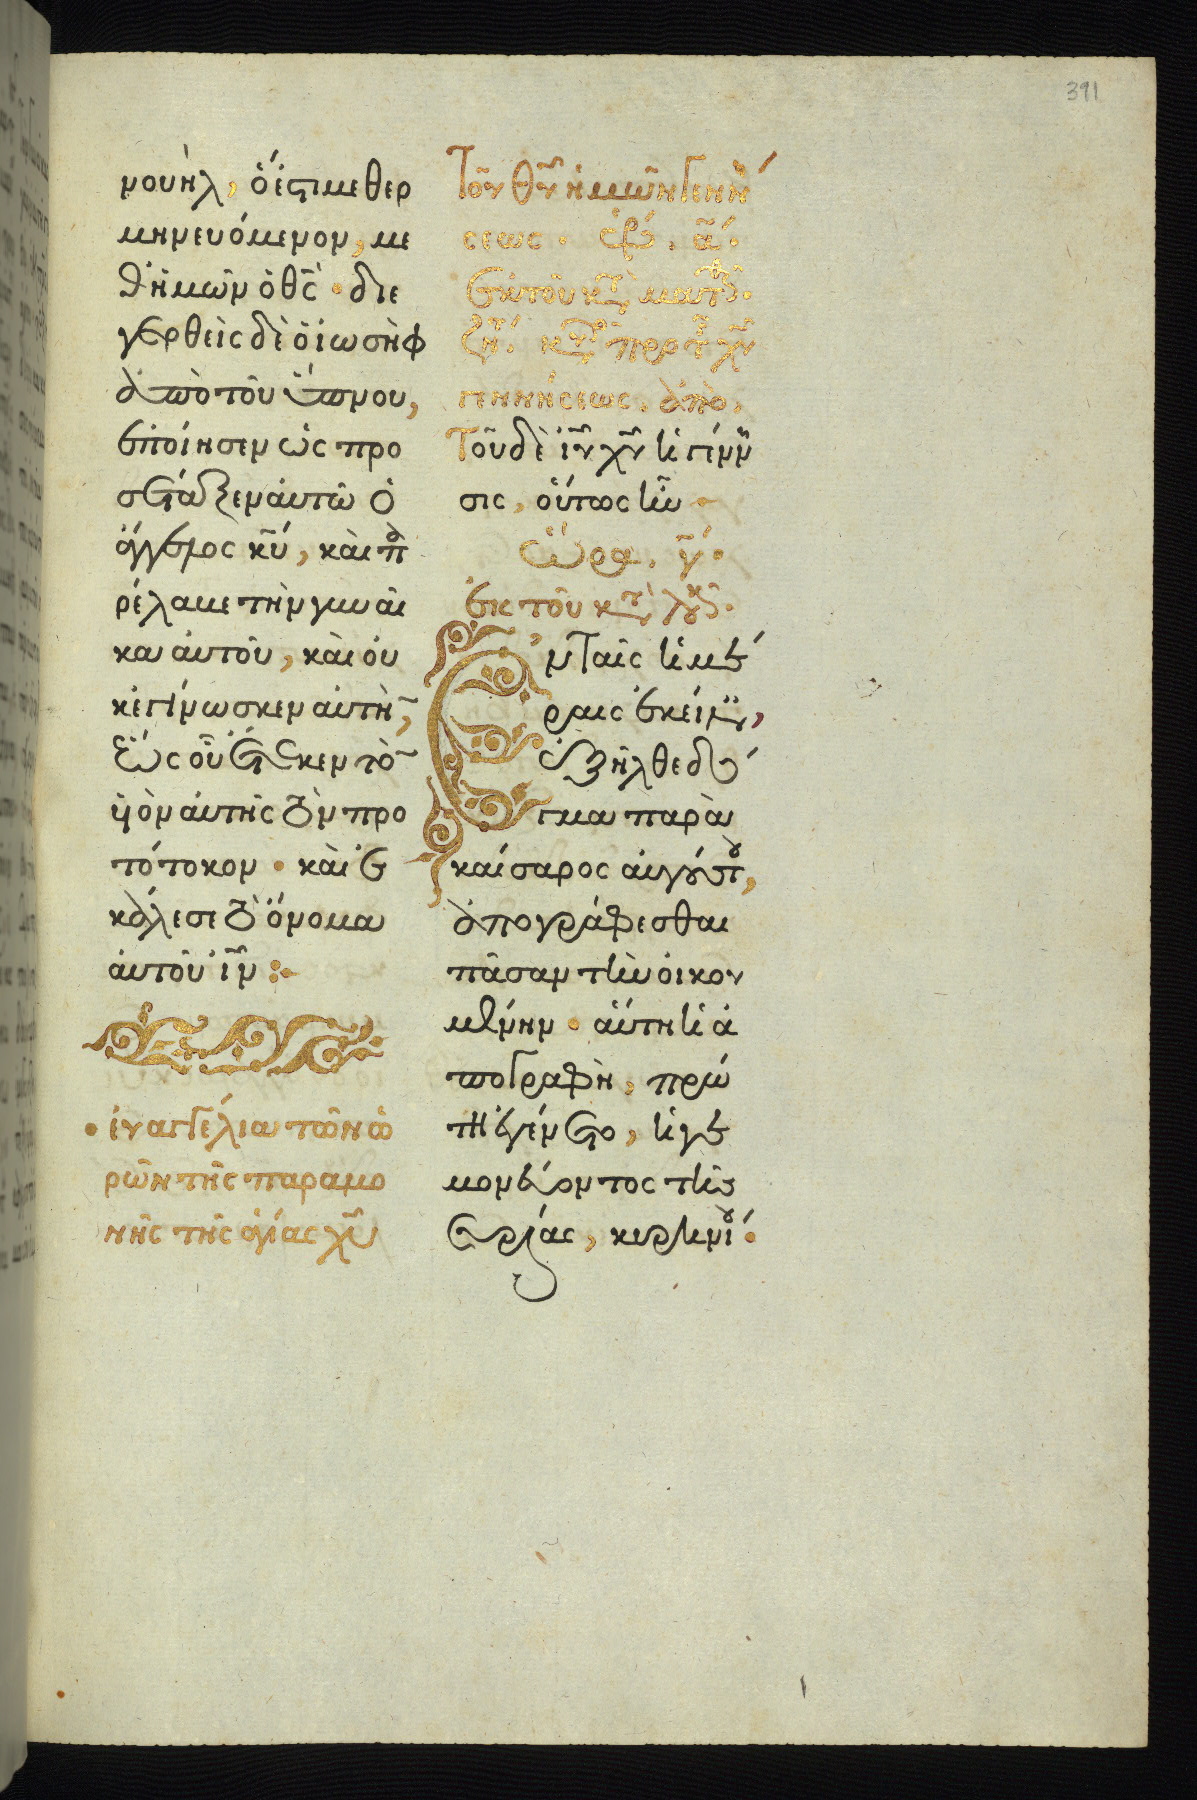 391
νουὴλ, ὅ ἐστι μεθερ
μηνευόμενον, με
θ' ἡμῶν ὁ θς̄ · διε
γερθεὶς δὲ ὁ ἰωσὴφ
ἀπὸ τοῦ ὕπνου,
ἐποίησεν ὡς προ
σέταξεν αὐτῶ ὁ
ἄγγελος κῡ, καὶ πα
ρέλαβε τὴν γυναῖ
κα αὐτοῦ, καὶ οὐ
κ ἐγίνωσκεν αὐτὴ̄,
ἕως οὗ ἔτεκεν τὸ̄
υἱὸν αὐτῆς τὸν πρω
τότοκον · καὶ ἐ
κάλεσε τὸ ὄνομα
αὐτοῦ ιν̄ :
· εὐαγγέλια τῶν ὡ
ρῶν τῆς παραμο
νῆς τῆς ἁγίας χῡ
τοῦ θῡ ἡμῶν γεννή
σεως · ὥρα. ᾱ ·
ἐκ τοῦ κτ̀ ματθ ·
πρὸ τ χῡ
γεννήσεως. ἀπὸ.
Τοῦ δὲ ιῡ χῡ ἡ γένη
σις, οὕτως ἦν
ὥρα. γ̄ ·
ἐκ τοῦ κτ̀ λουκ ·
Ἐν ταῖς ἡμέ
ραις ἐκείναις,
ἐξῆλθε δό
γμα παρὰ
καίσαρος αὐγούστου,
ἀπογράφεσθαι
πᾶσαν τὴν οἰκου
μένην · αὕτη ἡ ἀ
πογραφὴ, πρώ
τη ἐγένετο, ἡγε
μονεύοντος τῆς
συρίας, κυρηνίου ·